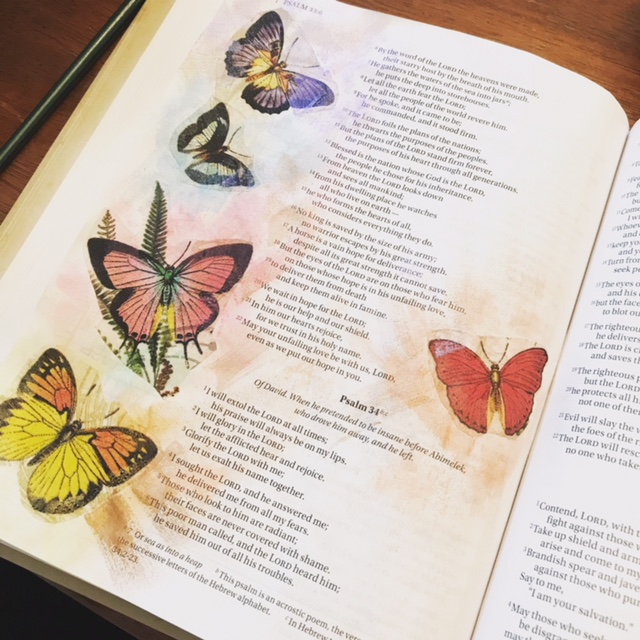 PSALM 33:6
⁶By the word of the LORD the heavens were made,
their starry host by the breath of his mouth.
⁷He gathers the waters of the sea into jarsᵃ;
he puts the deep into storehouses.
⁸Let all the earth fear the LORD;
let all the people of the world revere him.
⁹For he spoke, and it came to be;
he commanded, and it stood firm.
¹⁰The LORD foils the plans of the nations;
he thwarts the purposes of the peoples.
¹¹But the plans of the LORD stand firm forever,
the purposes of his heart through all generations.
¹²Blessed is the nation whose God is the LORD,
the people he chose for his inheritance.
¹³From heaven the LORD looks down
and sees all mankind;
¹⁴from his dwelling place he watches
all who live on earth—
¹⁵he who forms the hearts of all,
who considers everything they do.
¹⁶No king is saved by the size of his army;
no warrior escapes by his great strength.
¹⁷A horse is a vain hope for deliverance;
despite all its great strength it cannot save.
¹⁸But the eyes of the LORD are on those who fear him,
on those whose hope is in his unfailing love,
¹⁹to deliver them from death
and keep them alive in famine.
²⁰We wait in hope for the LORD;
he is our help and our shield.
²¹In him our hearts rejoice,
for we trust in his holy name.
²²May your unfailing love be with us, LORD,
even as we put our hope in you.
Psalm 34
Of David. When he pretended to be insane before Abimelek,
who drove him away, and he left.
¹I will extol the LORD at all times;
his praise will always be on my lips.
²I will glory in the LORD;
let the afflicted hear and rejoice.
³Glorify the LORD with me;
let us exalt his name together.
⁴I sought the LORD, and he answered me;
he delivered me from all my fears.
⁵Those who look to him are radiant;
their faces are never covered with shame.
⁶This poor man called, and the LORD heard him;
he saved him out of all his troubles.
Or sea as into a heap ᵇThis psalm is an acrostic poem, the ver
the successive letters of the Hebrew alphabet. ᶜIn Hebrew
turn from
seek p
¹⁵The eyes o
and his
¹⁶but the face
to blot ou
¹⁷The righteou
he delivers
¹⁸The LORD is c
and saves th
¹⁹The righteous
but the LORD
²⁰he protects all h
not one of the
²¹Evil will slay the w
the foes of the r
²²The LORD will resc
no one who take
¹Contend, LORD, with t
fight against those w
²Take up shield and arm
arise and come to my
³Brandish spear and jav
against those who pur
Say to me,
"I am your salvation."
⁴May those who seek
be disgr